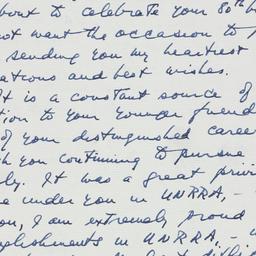 bout to celebrate your 80th b
not want the occasion to
sending you my heartiest
ations and best wishes.
It is a constant source of
tion to your younger friend
of your distinguished career
h you continuing to pursue
ly. It was a great privi
e under you in UNRRA, -
ou, I am extremely proud
mplishments in UNRRA, -